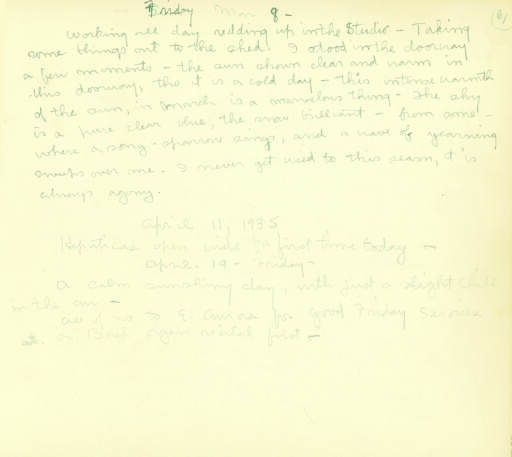 Friday Mar 8 -
61
Working all day redding up in the Studio - Taking
some things out to the shed. I stood in the doorway
a few moments - the sun shown clear and warm in
this doorway, tho it is a cold day - this intense warmth
of the sun, in March is a marvelous thing - The sky
is a pure clear blue, the snow brilliant - from some-
where a song-sparrow sings, and a wave of yearning
sweeps over me. I never get used to this season, it is
always agony.
April 11, 1935
Hepaticas open wide for first time today -
April - 19 - Friday -
A calm sunshiny day, with just a slight chill
in the air -
All of us to E. Aurora for Good Friday Services
at. organ recital first -